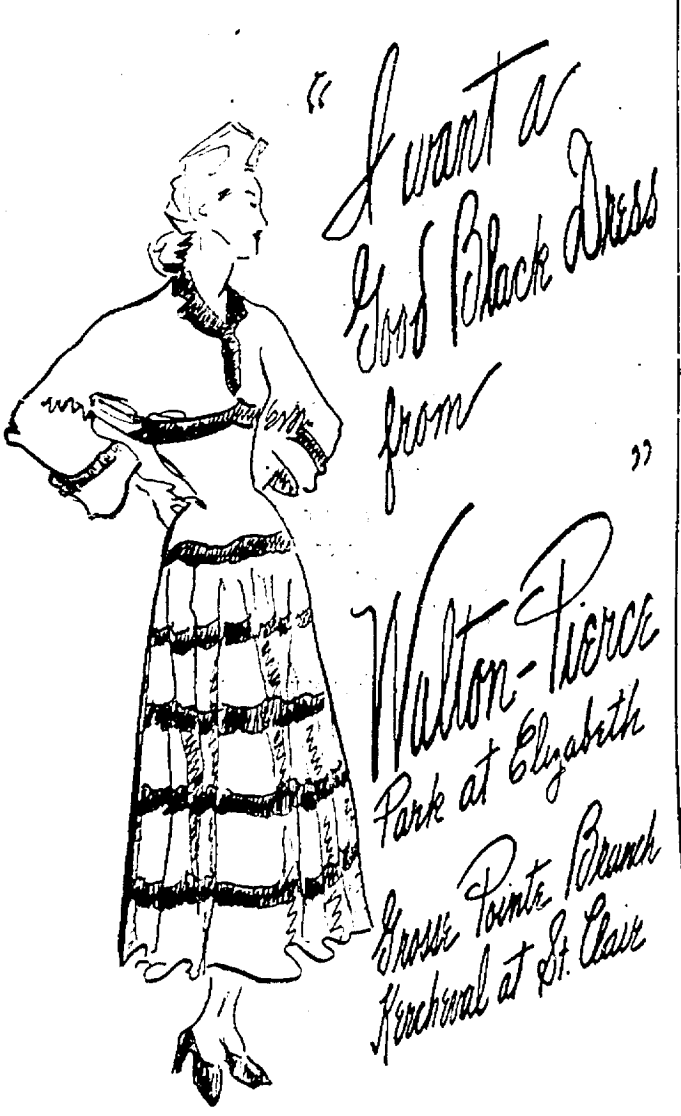 "I want a
Good Black Dress
from
"
Walton-Pierce
Park at Elizabeth
Grosse Pointe Branch
Kercheval at St. Clair